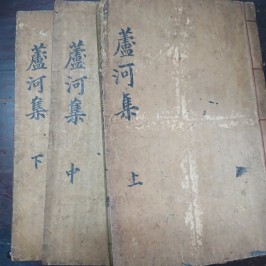 蘆河集 上
蘆河集 中
蘆河集 下